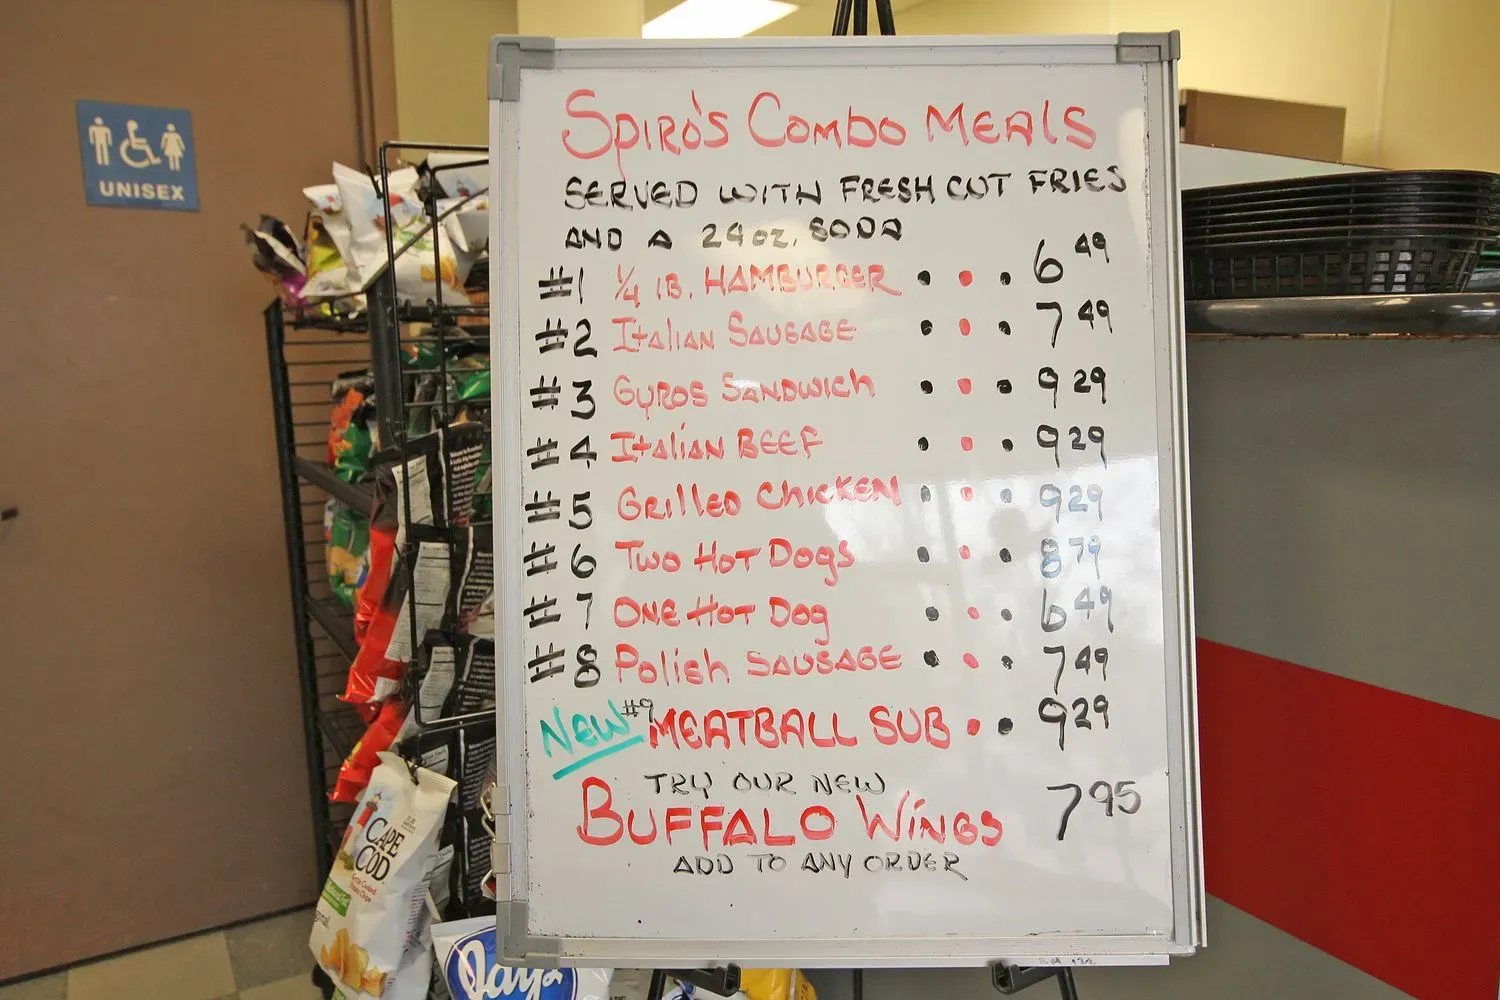 UNISEX
SPIRO'S COMBO MEALS
SERVED WITH FRESH CUT FRIES
AND A 24 OZ. SODA
#1 1/4 LB. HAMBURGER • • • 6 49
#2 ITALIAN SAUSAGE • • • 7 49
#3 GYROS SANDWICH • • • 9 29
#4 ITALIAN BEEF • • • 9 29
#5 GRILLED CHICKEN • • • 9 29
#6 TWO HOT DOGS • • • 8 79
#7 ONE HOT DOG • • • 6 49
#8 POLISH SAUSAGE • • • 7 49
NEW #9 MEATBALL SUB • • 9 29
TRY OUR NEW
BUFFALO WINGS 7 95
ADD TO ANY ORDER
CAPE
COD
Jays